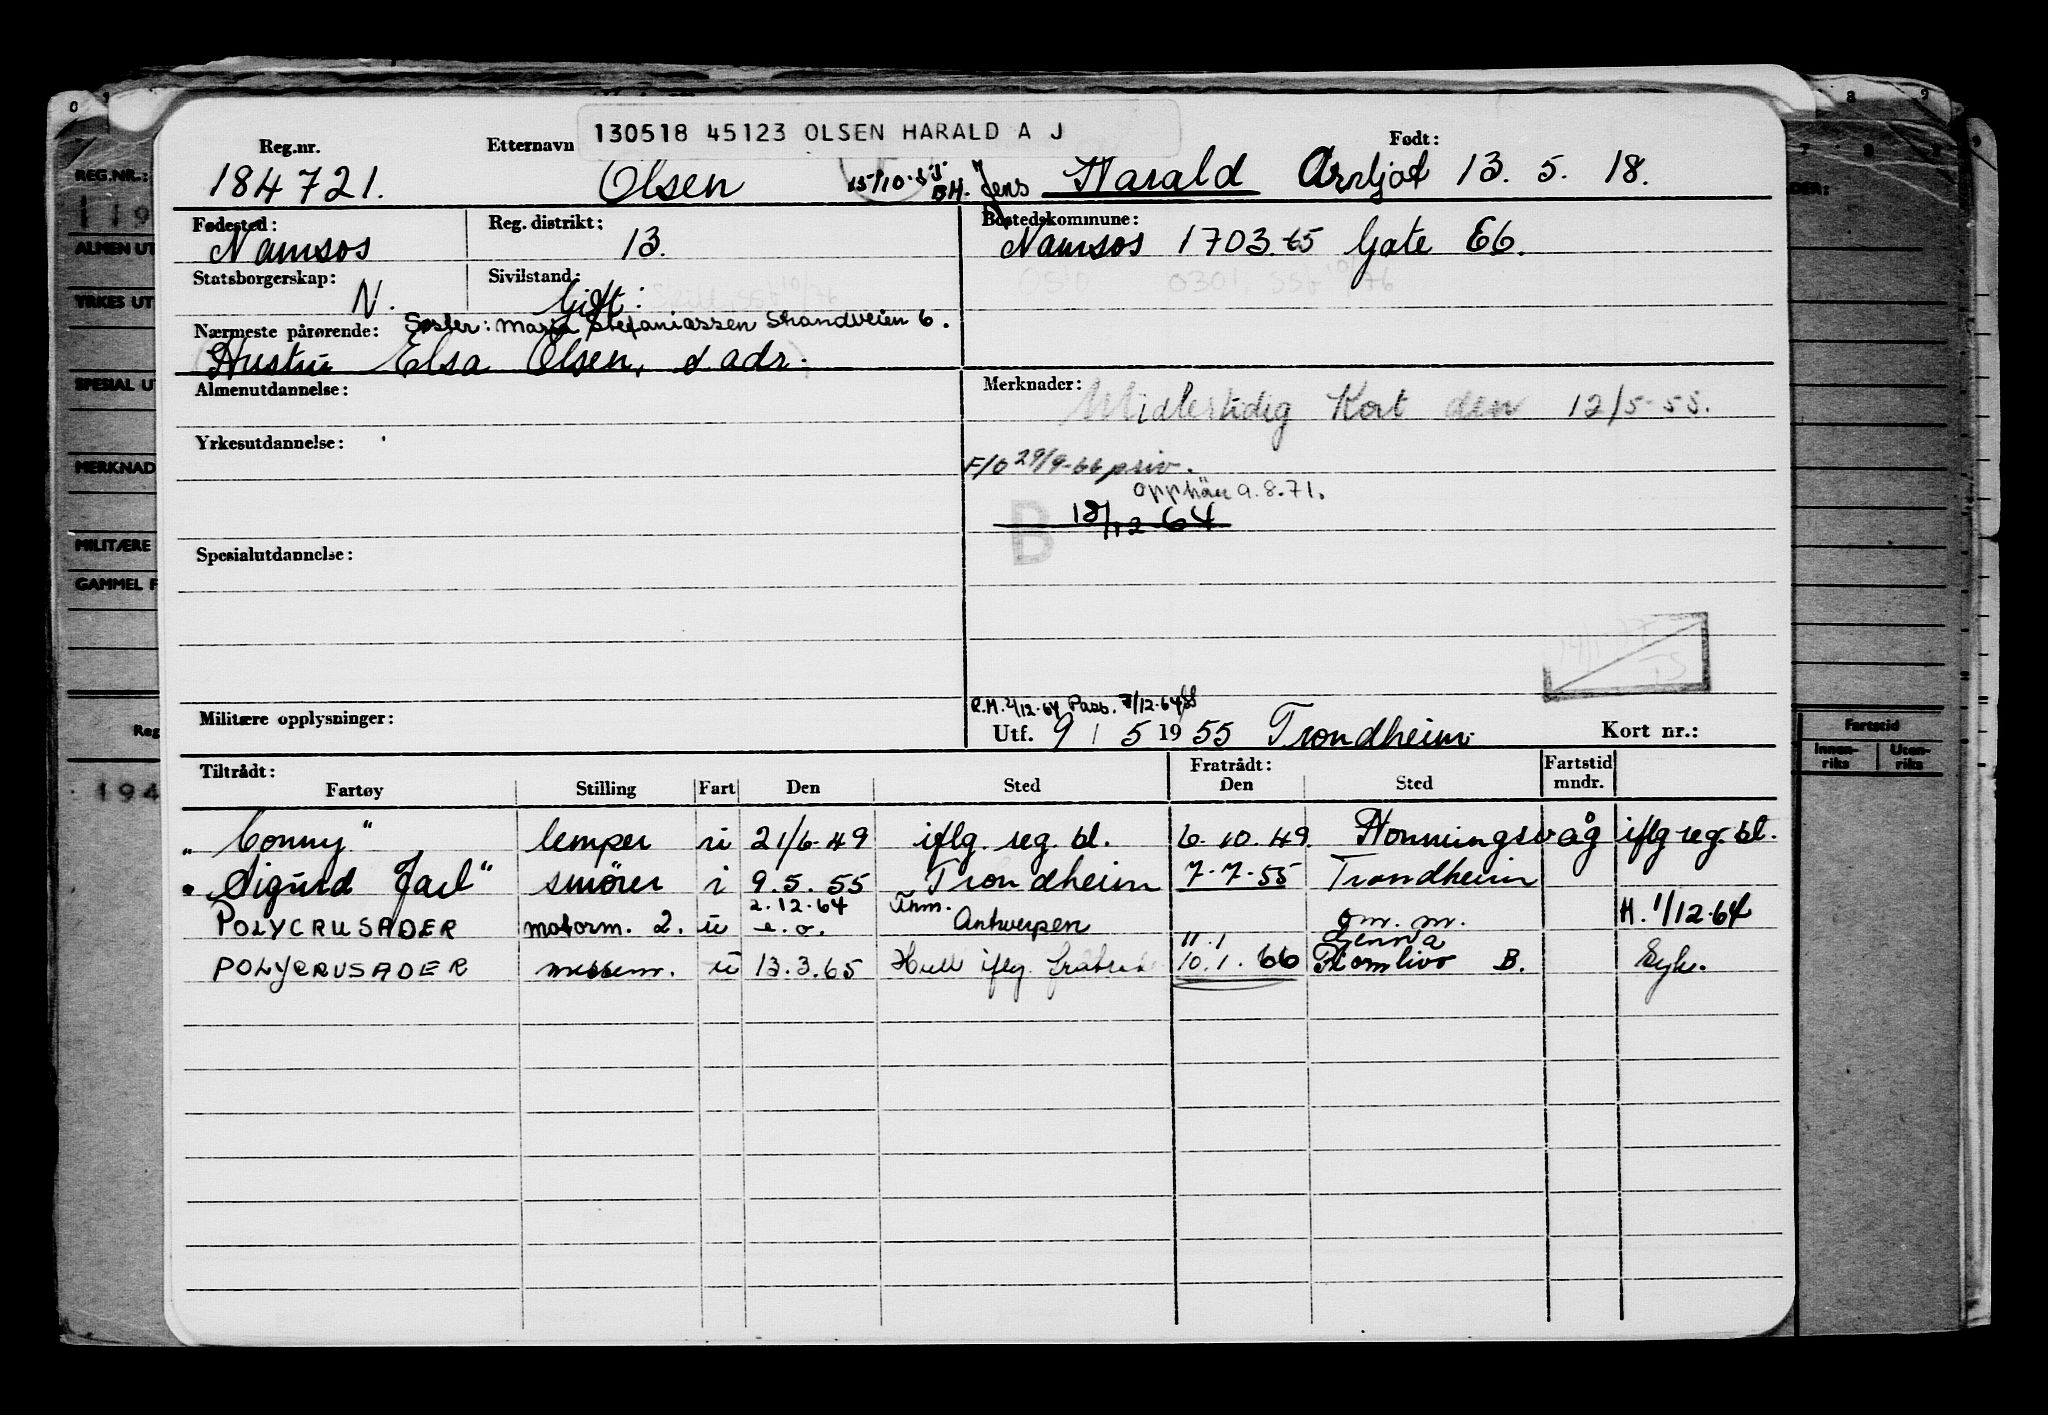 130518 45123 OLSEN HARALD A J
Reg.nr. Etternavn Født:
184721. Olsen 15/10-55 B.H. Jens Harald Arnljot 13. 5. 18.
Fødested: Reg. distrikt: Bostedskommune:
Namsos 13. Namsos 1703. 65 Gate E6.
Statsborgerskap: Sivilstand: Oslo 0301,
N. Gift.
Nærmeste pårørende: Søster: Maria Stefaniassen Strandveien 6.
Hustru Elsa Olsen, s. adr.
Almenutdannelse: Merknader: Midlertidig Kort den 12/5-55.
Yrkesutdannelse:
F/O 29/9-66 priv.
opphør 9.8.71.
B 18/12-64
Spesialutdannelse:
R.H. 2/12-64 Pass. 7/12-64
Militære opplysninger: Utf. 9 / 5 1955 Trondheim Kort nr.:
Tiltrådt: Fratrådt: Fartstid
Fartøy Stilling Fart Den Sted Den Sted mndr.
"Conny" lemper u 21/6-49 iflg. reg. bl. 6.10.49 Honningsvåg iflg reg. bl.
"Sigurd Jarl" smører i 9.5.55 Trondheim 7-7-55 Trondheim
2.12.64 Thm.
POLYCRUSADER motorm. 2. u e.o. Antwerpen om. m. H. 1/12-64
11.1 Genova
POLYCRUSADER messem. u 13.3.65 Hull iflg. 10.1.66 B. Syk.
REG.NR.:
119
ALMEN UT
YRKES UT
SPESIAL UT
MERKNAD
MILITÆRE
GAMMEL F
Reg
194
Fartstid
Innen-riks Uten-riks